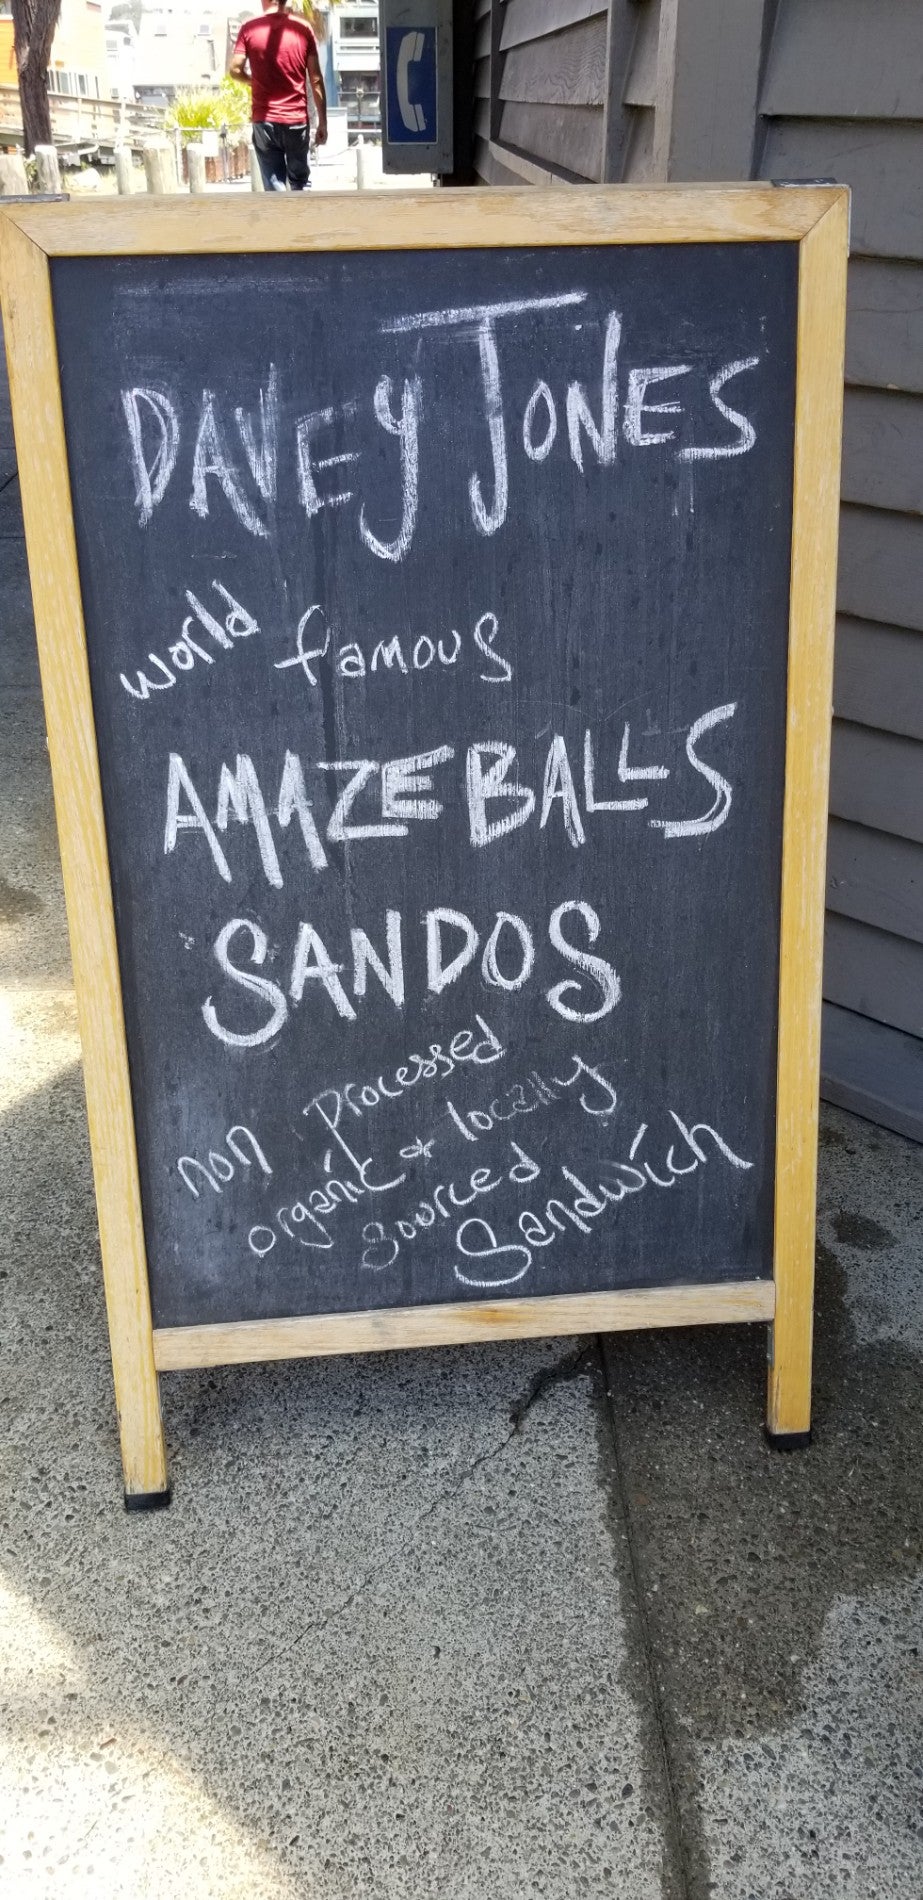 DAVEY JONES
world famous
AMAZEBALLS
SANDOS
non processed
organic or locally
sourced
Sandwich